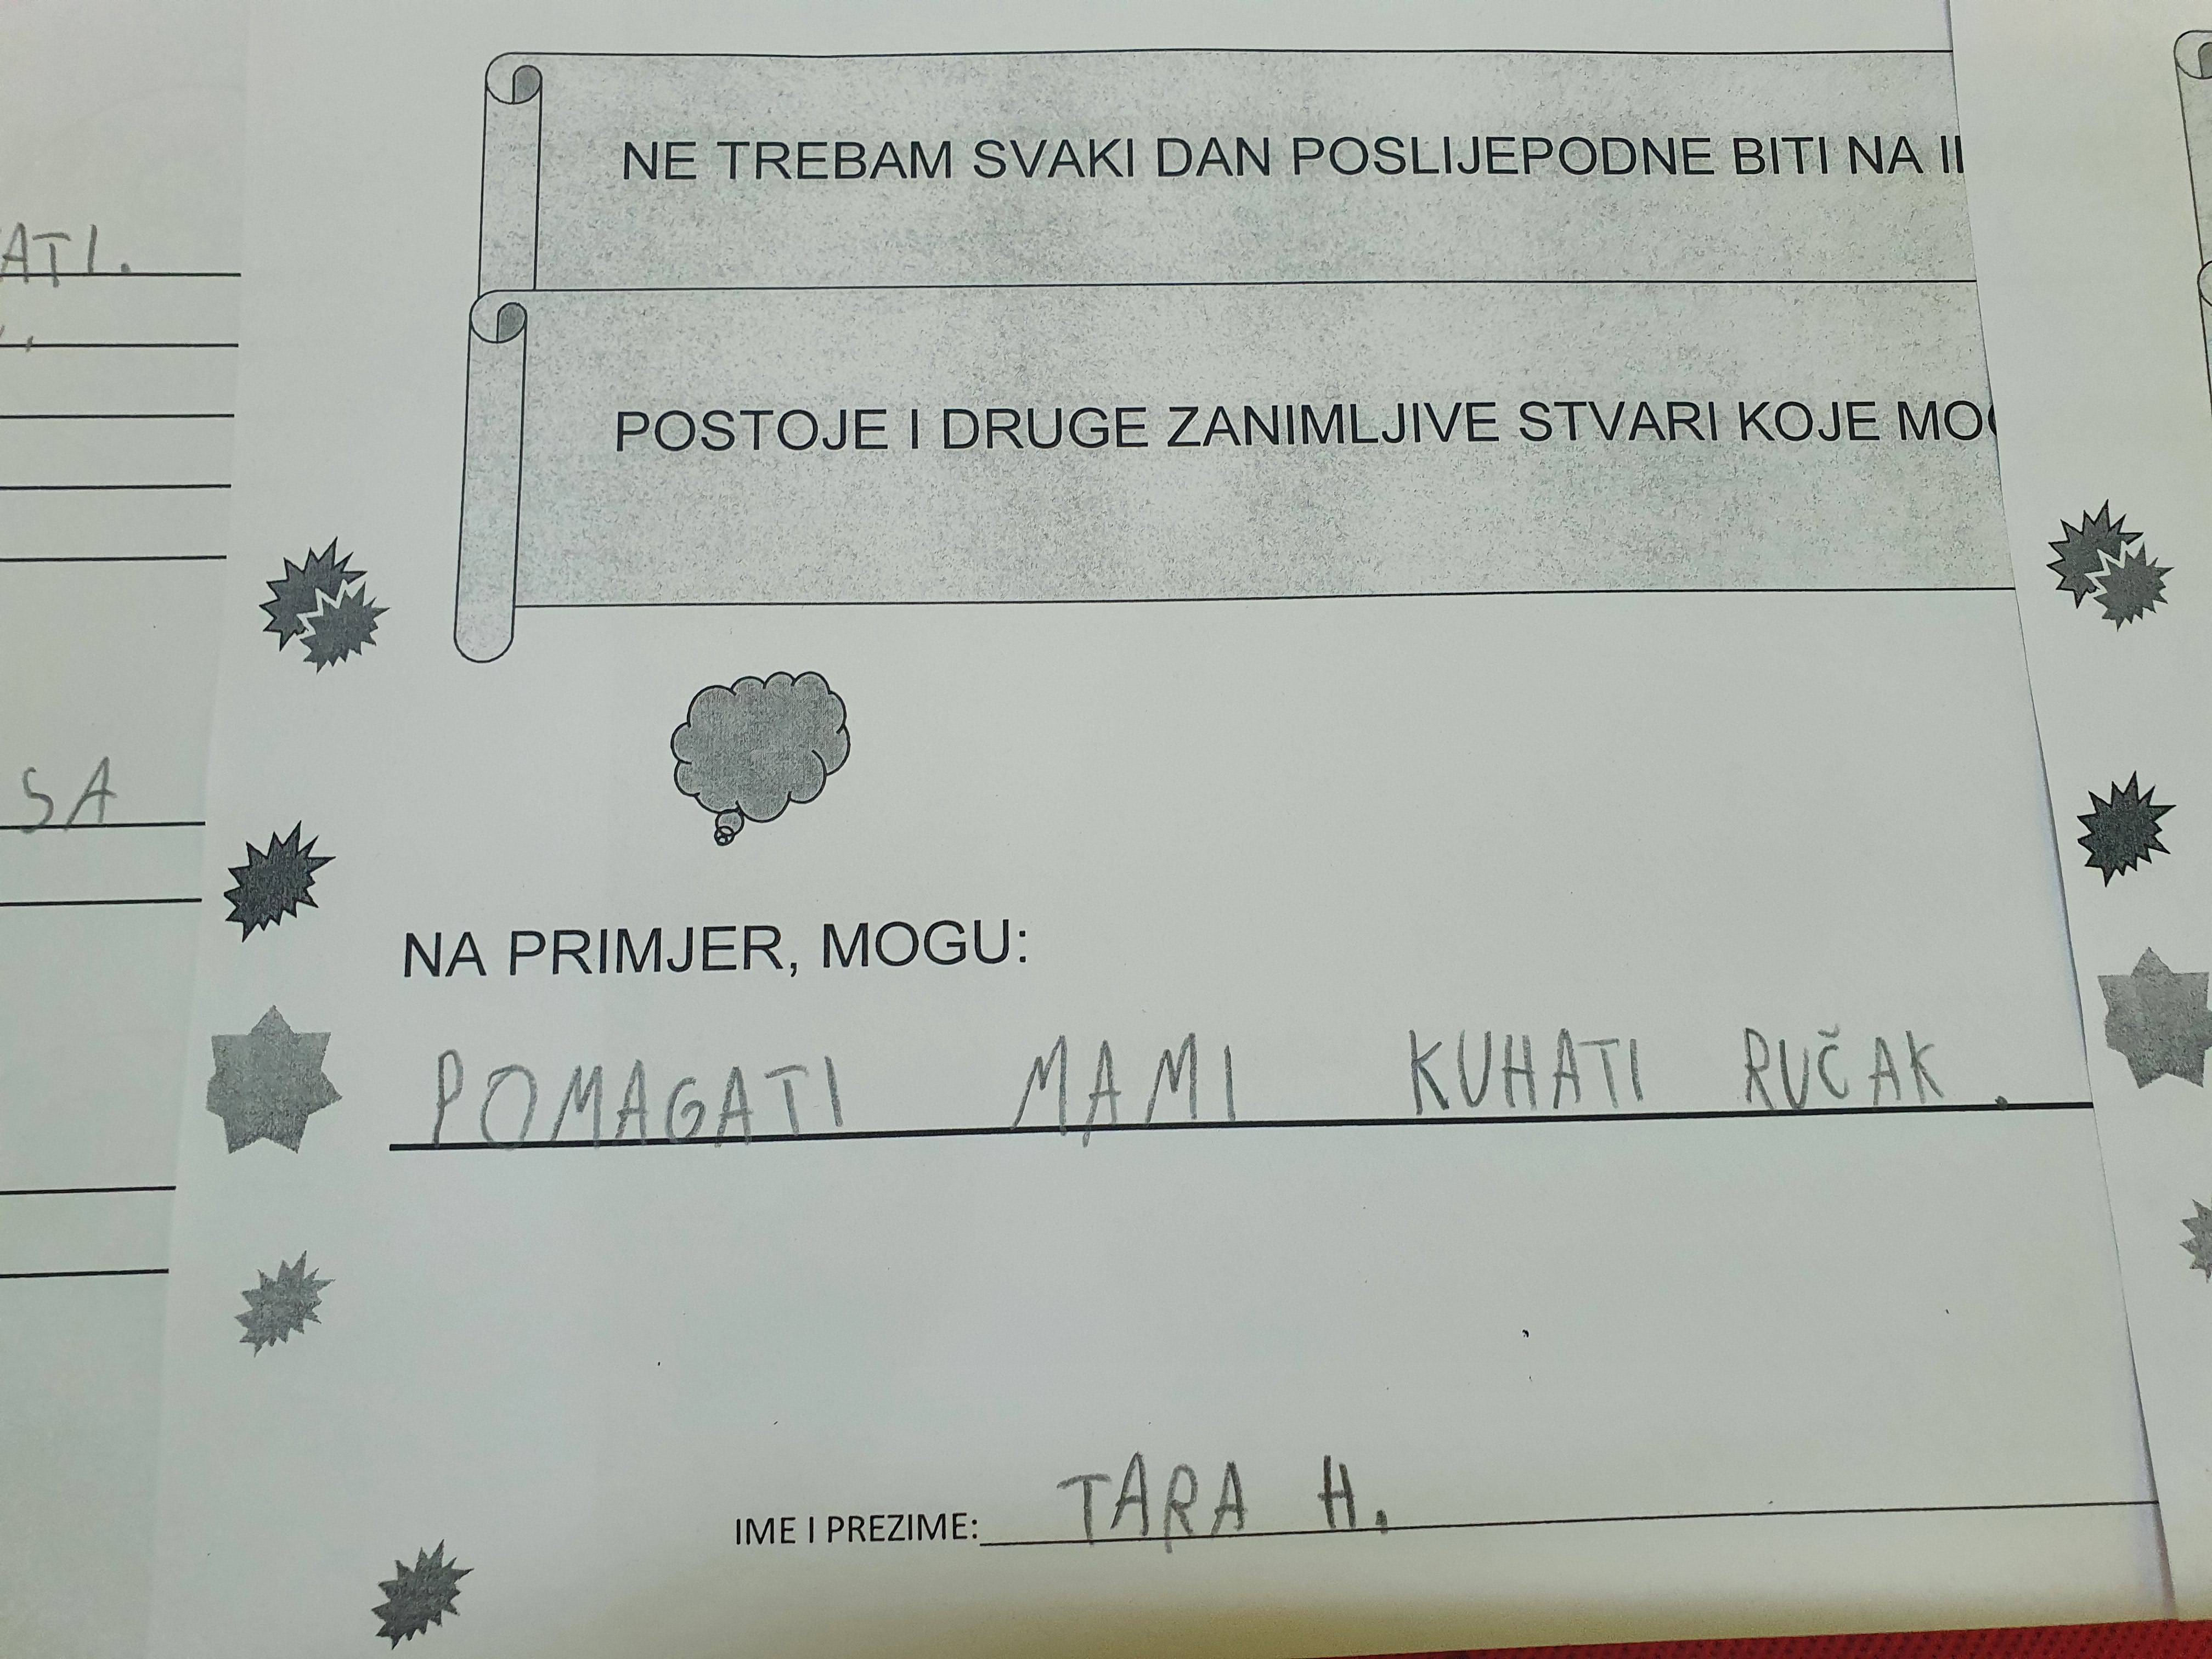 NE TREBAM SVAKI DAN POSLIJEPODNE BITI NA
POSTOJE I DRUGE ZANIMLJIVE STVARI KOJE
NA PRIMJER, MOGU:
POMAGATI MAMI KUHATI RUČAK.
IME I PREZIME: TARA H.
SA